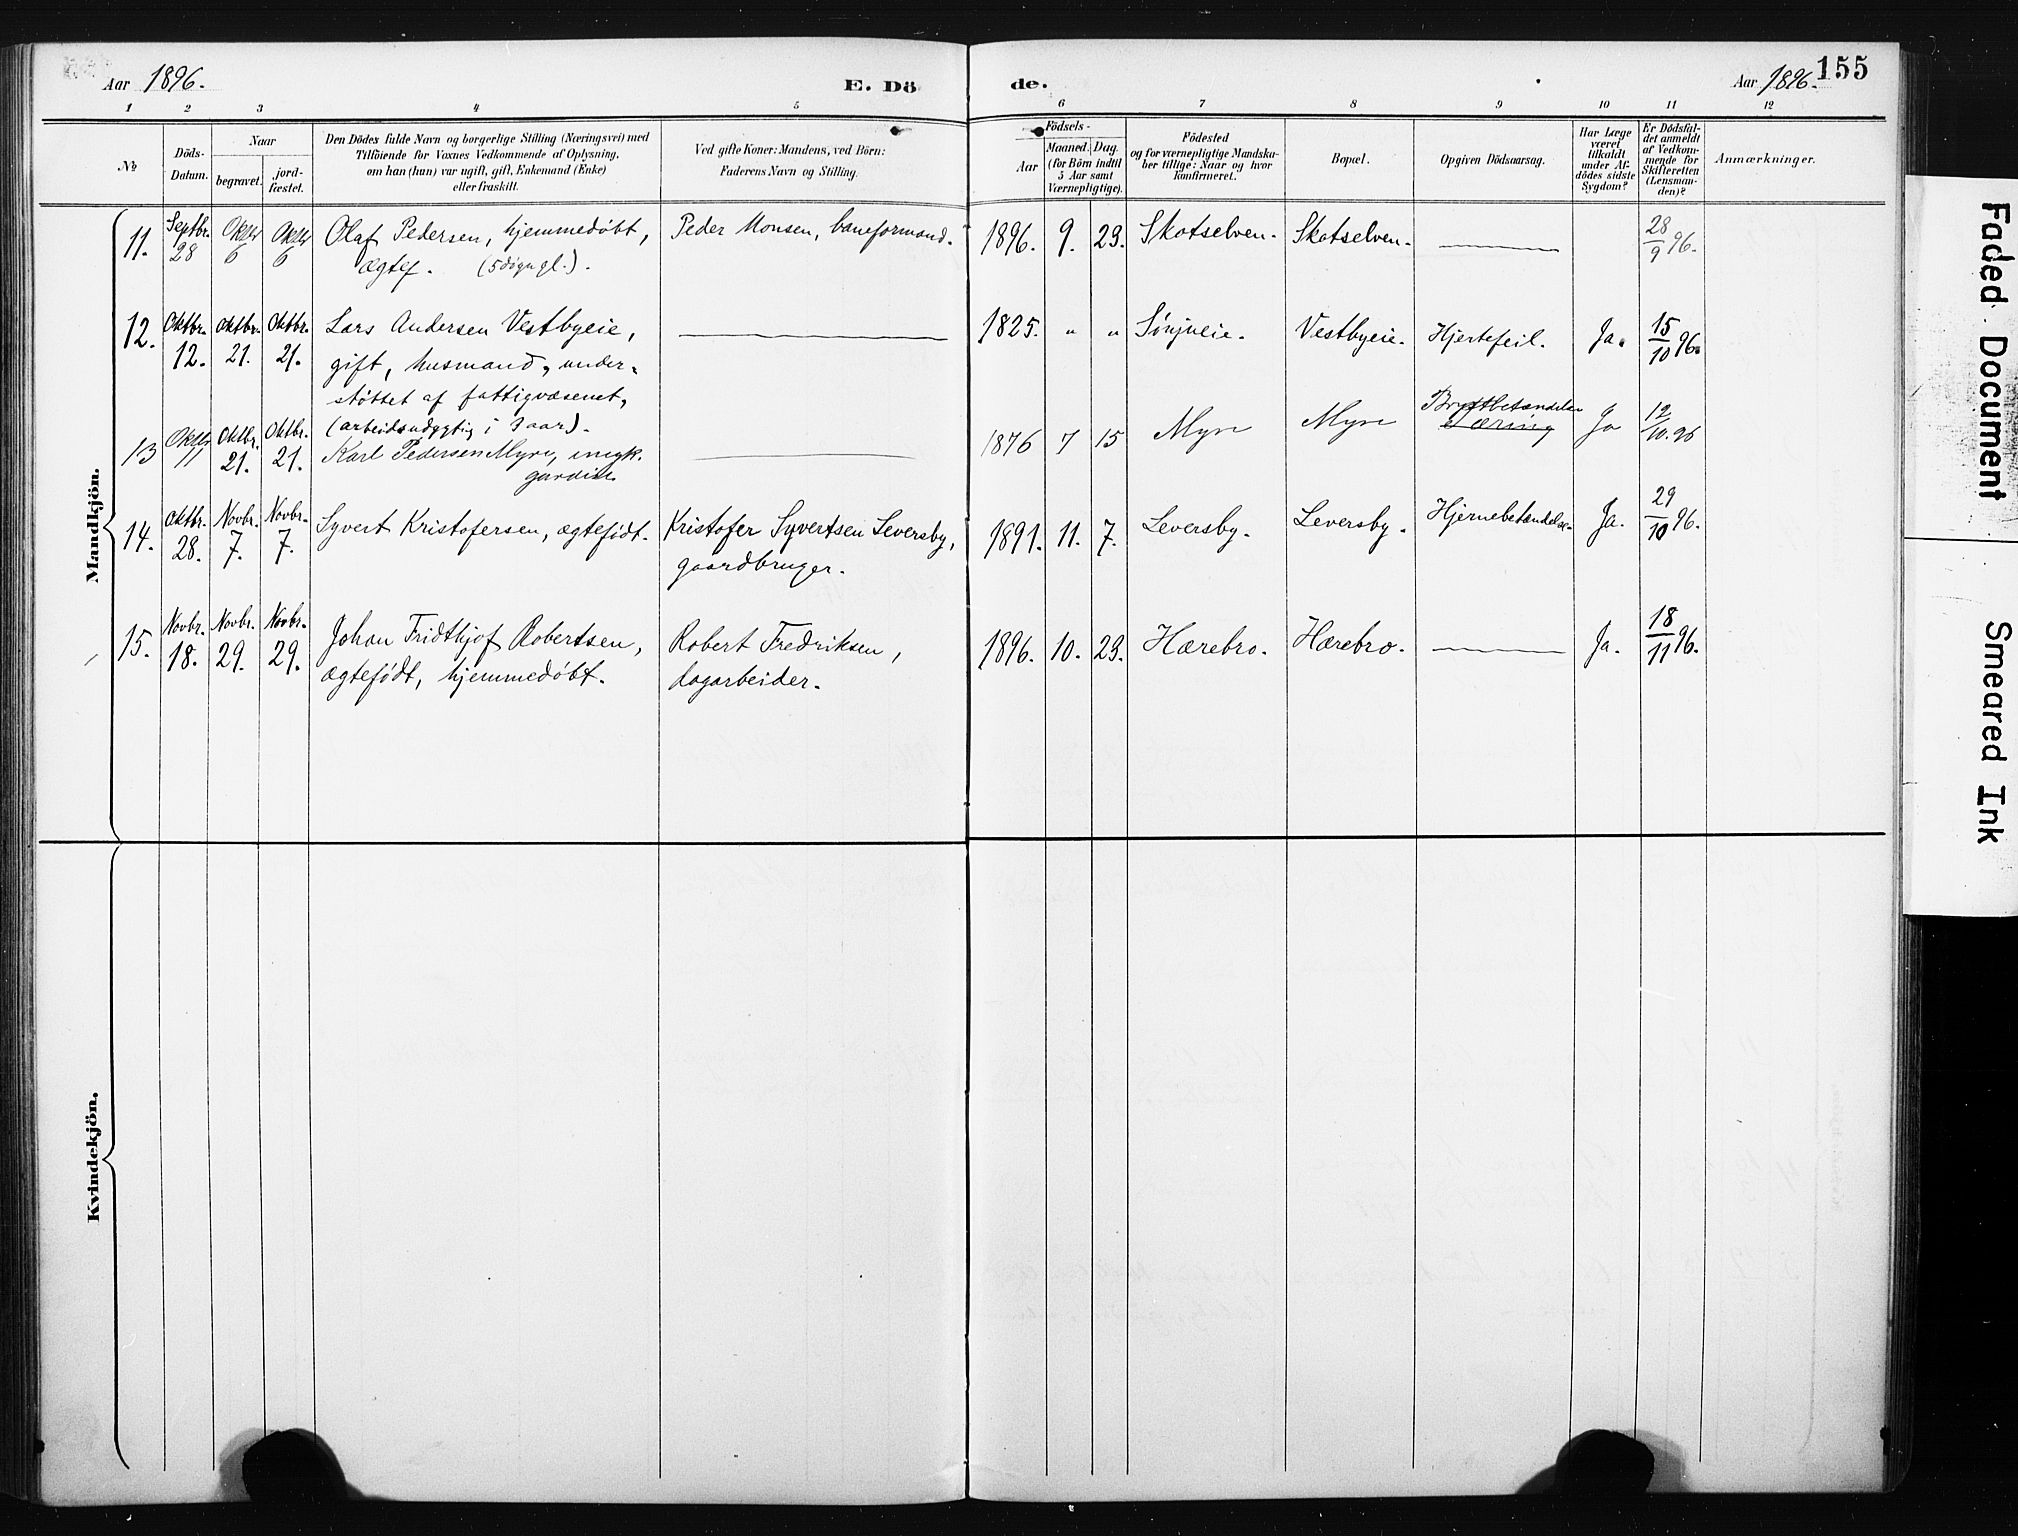 Aar 1896. E. Dö de. Aar 1896. 155
1 2 3 4 5 6 7 8 9 10 11 12
№
Döds-Datum.
Naar
begravet.
jordfæstet.
Den Dödes fulde Navn og borgerlige Stilling (Næringsvei) med
Tilföiende for Voxnes Vedkommende af Oplysning,
om han (hun) var ugift, gift, Enkemand (Enke)
eller fraskilt.
Ved gifte Koner: Mandens, ved Börn:
Faderens Navn og Stilling.
Födsels-
Aar
Maaned. Dag.
(for Börn indtil
5 Aar samt
Værnepligtige).
Födested
og for værnepligtige Mandska-
ber tillige: Naar og hvor
konfirmeret.
Bopæl.
Opgiven Dödsaarsag.
Har Læge
været
tilkaldt
under Af-
dödes sidste
Sygdom?
Er Dödsfal-
det anmeldt
af Vedkom-
mende for
Skifteretten
(Lensman-
den)?
Anmærkninger.
Mandkjön.
11. Septbr. 28 Oktbr 6 Oktbr 6 Olaf Pedersen, hjemmedøbt, Peder Monsen, baneformand. 1896. 9. 23. Skotselven. Skotselven. 28/9 96.
ægtef. (5 døgn gl.).
12. Oktbr. 12. Oktbr. 21. Oktbr. 21. Lars Andersen Vestbyeie, 1825. " " Vestbyeie. Hjertefeil. Ja. 15/10 96.
gift, husmand, under-
støttet af fattigvæsenet,
(arbeidsudygtig i 3 aar).
13 Oktbr 11 Oktbr. 21. Oktbr. 21. Karl Pedersen Myre, ungk. 1876 7 15 Myre Myre Brystbetændelse Tæring Ja 12/10.96
gardist
14. Oktbr. 28. Novbr. 7. Novbr. 7. Syvert Kristofersen, ægtefødt. Kristofer Syvertsen Leversby, 1891. 11. 7. Leversby. Leversby. Hjernebetændelse. Ja. 29/10 96.
gaardbruger.
15. Novbr. 18. Novbr. 29. Novbr. 29. Johan Fridthjof Robertsen, Robert Fredriksen, 1896. 10. 23. Hærebro. Hærebro. Ja. 18/11 96.
ægtefødt, hjemmedøbt. dagarbeider.
Kvindekjön.
Faded Document
Smeared Ink